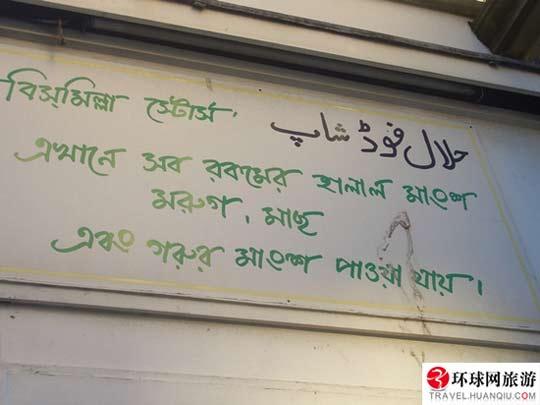 বিসমিল্লা স্টোর্স, حلال فوڈ شاپ
এখানে সব রকমের হালাল মাংশ
মরুগ, মাছ
এবং গরুর মাংশ পাওয়া যায়।
环球网旅游
TRAVEL.HUANQIU.COM